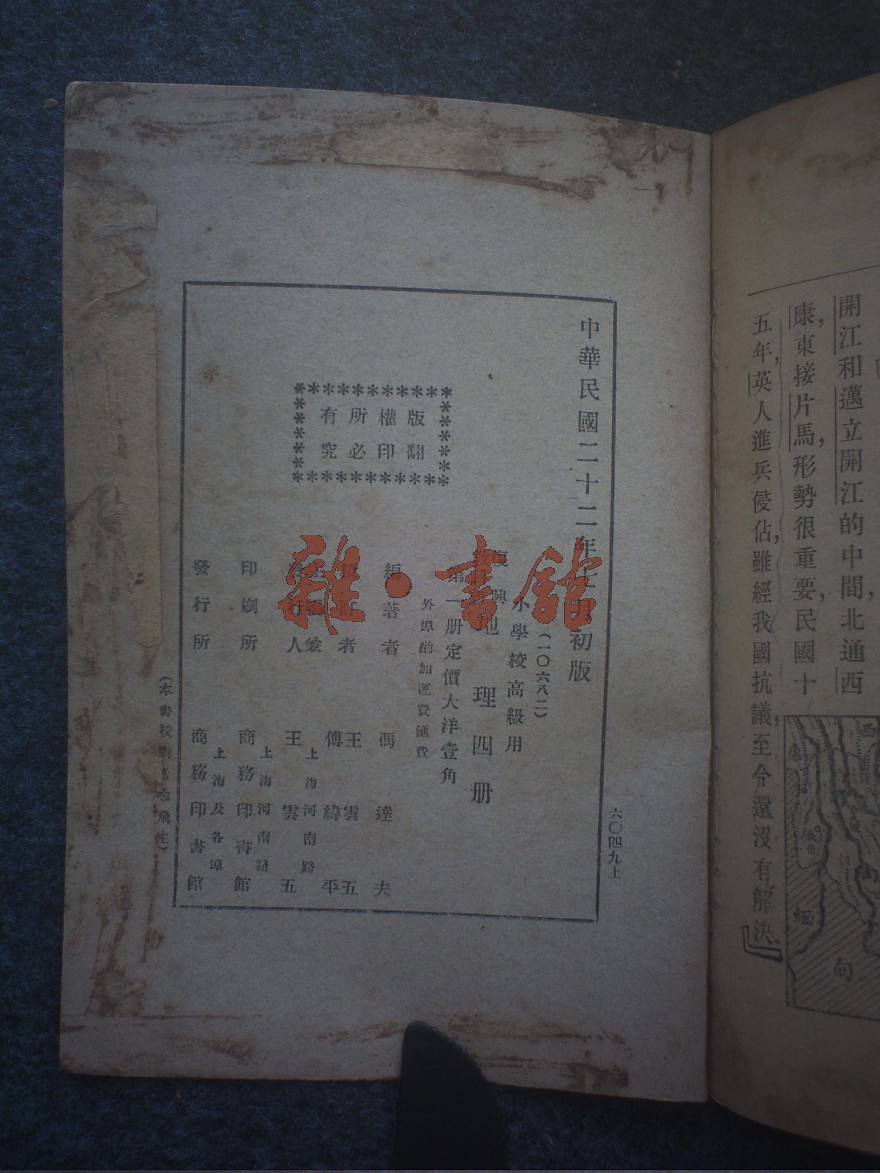 開江和邁立開江的中間，北通西
康，東接片馬，形勢很重要，民國十
五年，英人進兵侵佔，雖經我國抗議至今還沒有解決。
西
康
緬
甸
中華民國二十二年七月初版
六〇四九上
(一〇六八二)
小學校高級用
復興教科書地理四册
第一册定價大洋壹角
外埠酌加運費匯費
版權所有
翻印必究
編著者 馮達夫
校訂者 王雲五 傅緯平
發行人 王雲五
上海河南路
印刷所 商務印書館
上海河南路
發行所 商務印書館
上海及各埠
雜·書館